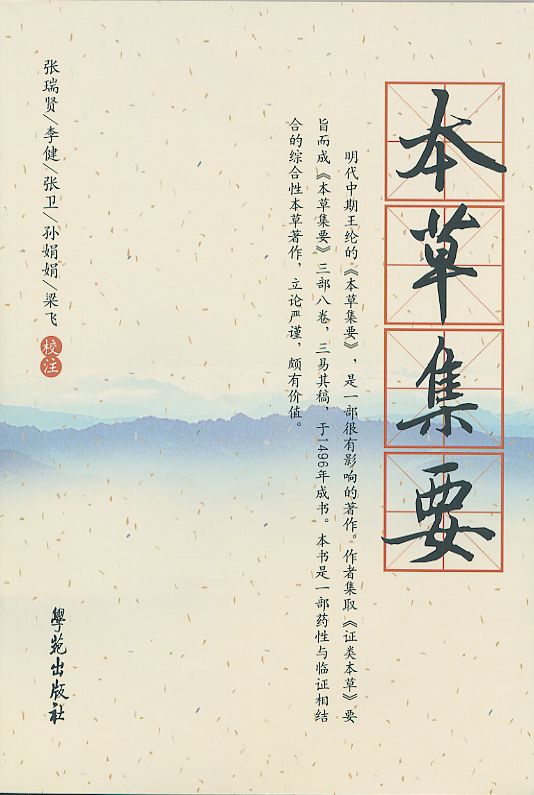 本草集要
明代中期王纶的《本草集要》，是一部很有影响的著作。作者集取《证类本草》要
旨而成《本草集要》三部八卷，三易其稿，于1496年成书。本书是一部药性与临证相结
合的综合性本草著作，立论严谨，颇有价值。
张瑞贤／李健／张卫／孙娟娟／梁飞 校注
學苑出版社